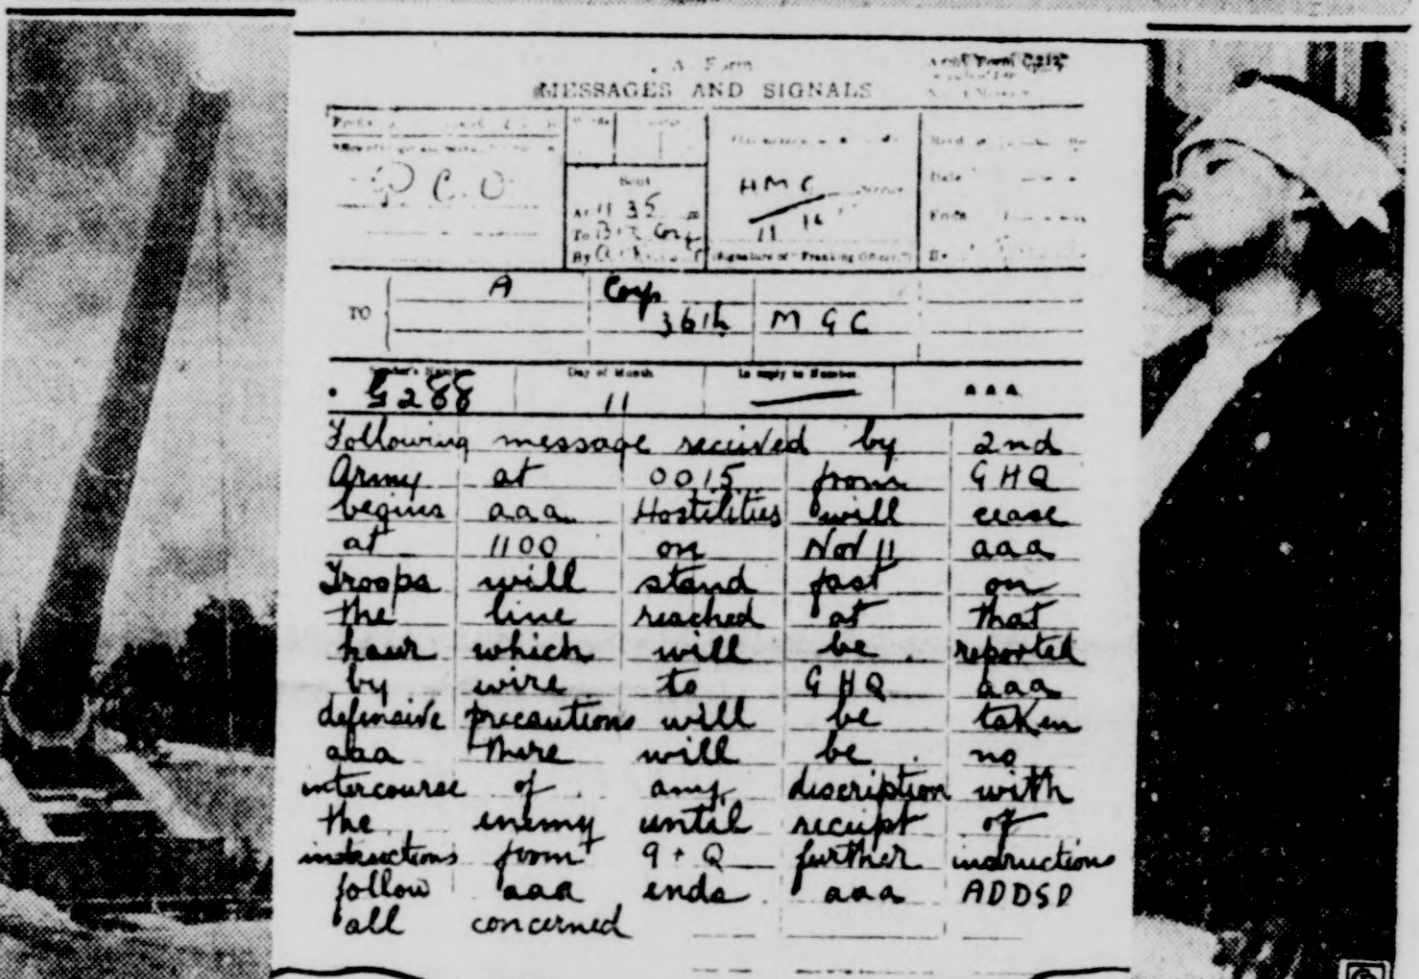 A Form
MESSAGES AND SIGNALS
Sent
At 11 35 m
To
By
HMC
11 16
(Signature of "Franking Officer")
Date
A Corps
TO
36th M G C
Sender's Number Day of Month In reply to Number
G288 11 AAA
Following message received by 2nd
Army at 0015 from GHQ
begins aaa Hostilities will cease
at 1100 on Nov 11 aaa
Troops will stand fast on
the line reached at that
hour which will be reported
by wire to GHQ aaa
defensive precautions will be taken
aaa There will be no
intercourse of any discription with
the enemy until receipt of
instructions from G+Q further instructions
follow aaa ends aaa ADDSD
all concerned